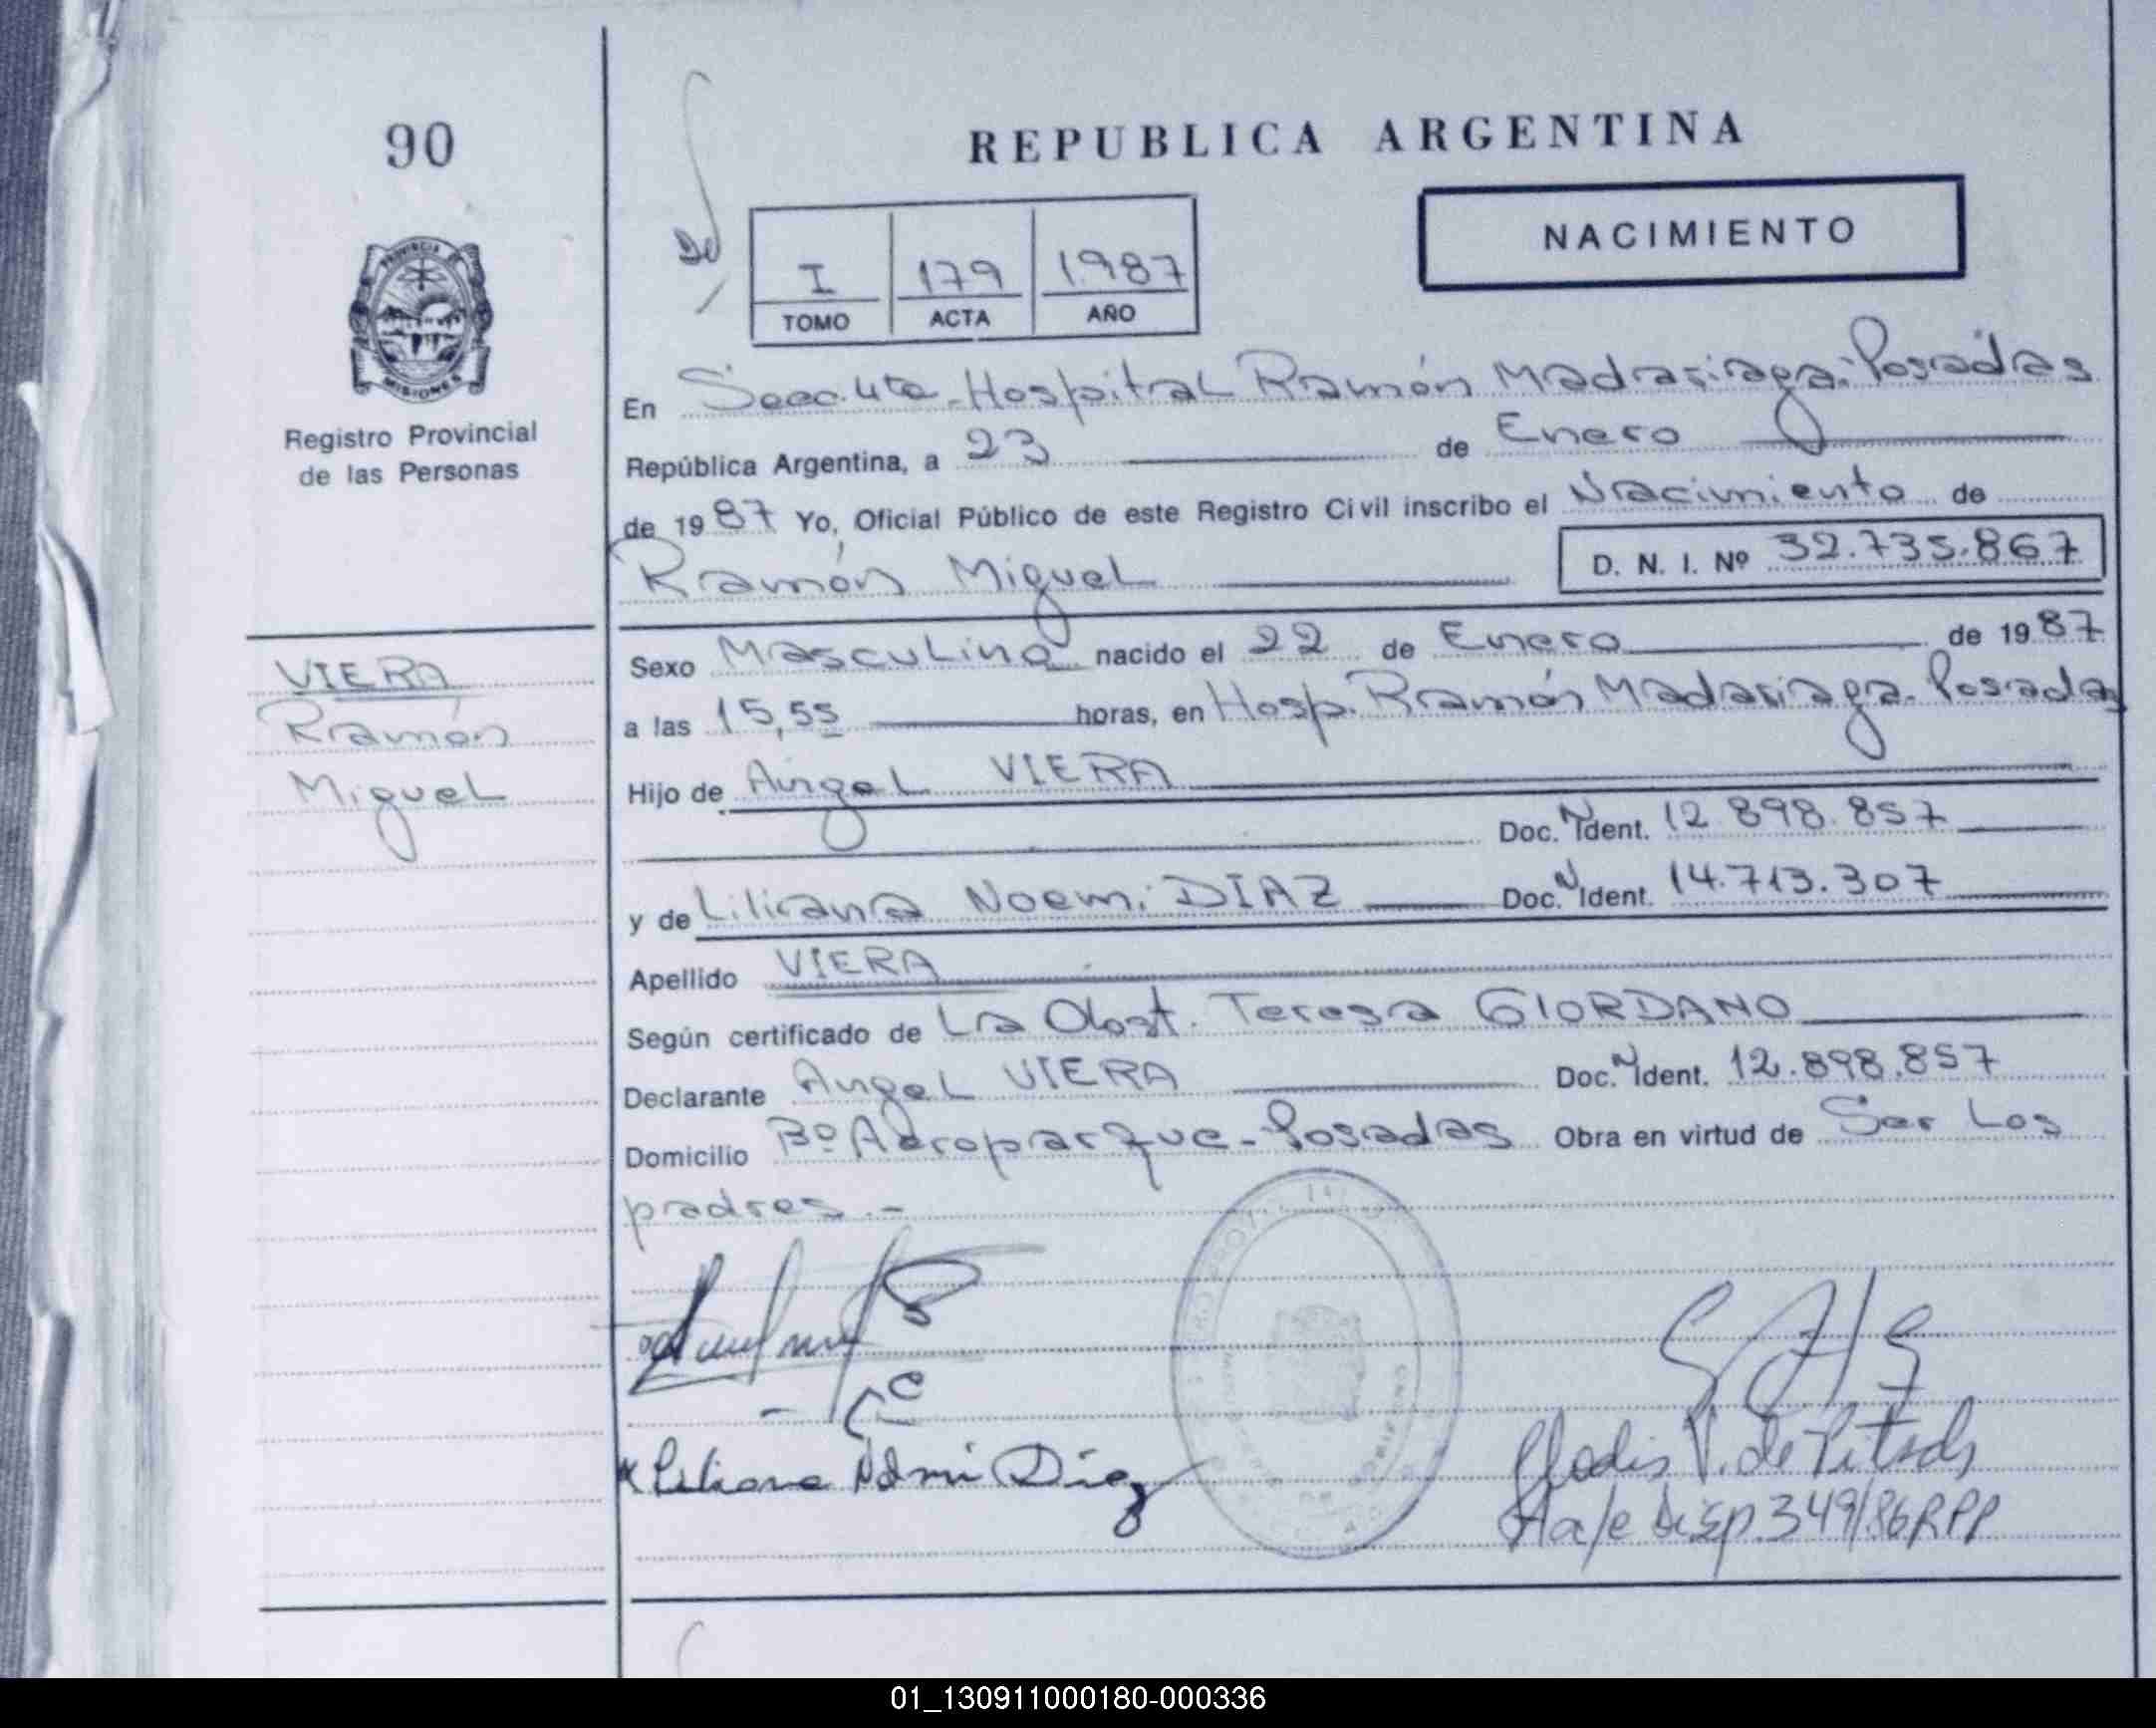 90
REPUBLICA ARGENTINA
NACIMIENTO
I 179 1.987
TOMO ACTA AÑO
PROVINCIA DE
MISIONES
Registro Provincial
de las Personas
En Secc. 4ta. Hospital Ramón Madariaga. Posadas
República Argentina, a 23 de Enero
de 1987 Yo, Oficial Público de este Registro Civil inscribo el Nacimiento de
Ramón Miguel
D. N. I. Nº 32.735.867
Sexo Masculino nacido el 22 de Enero de 1987
a las 15,55 horas, en Hosp. Ramón Madariaga. Posadas
Hijo de Angel VIERA
Doc. N Ident. 12.898.857
y de Liliana Noemi DIAZ Doc. N Ident. 14.713.307
Apellido VIERA
Según certificado de La Obst. Teresa GIORDANO
Declarante Angel VIERA Doc. N Ident. 12.898.857
Domicilio Bº Aeroparque - Posadas Obra en virtud de Ser Los
padres.-
VIERA
Ramón
Miguel
V. de
Disp. 349/86 RPP
01_130911000180-000336